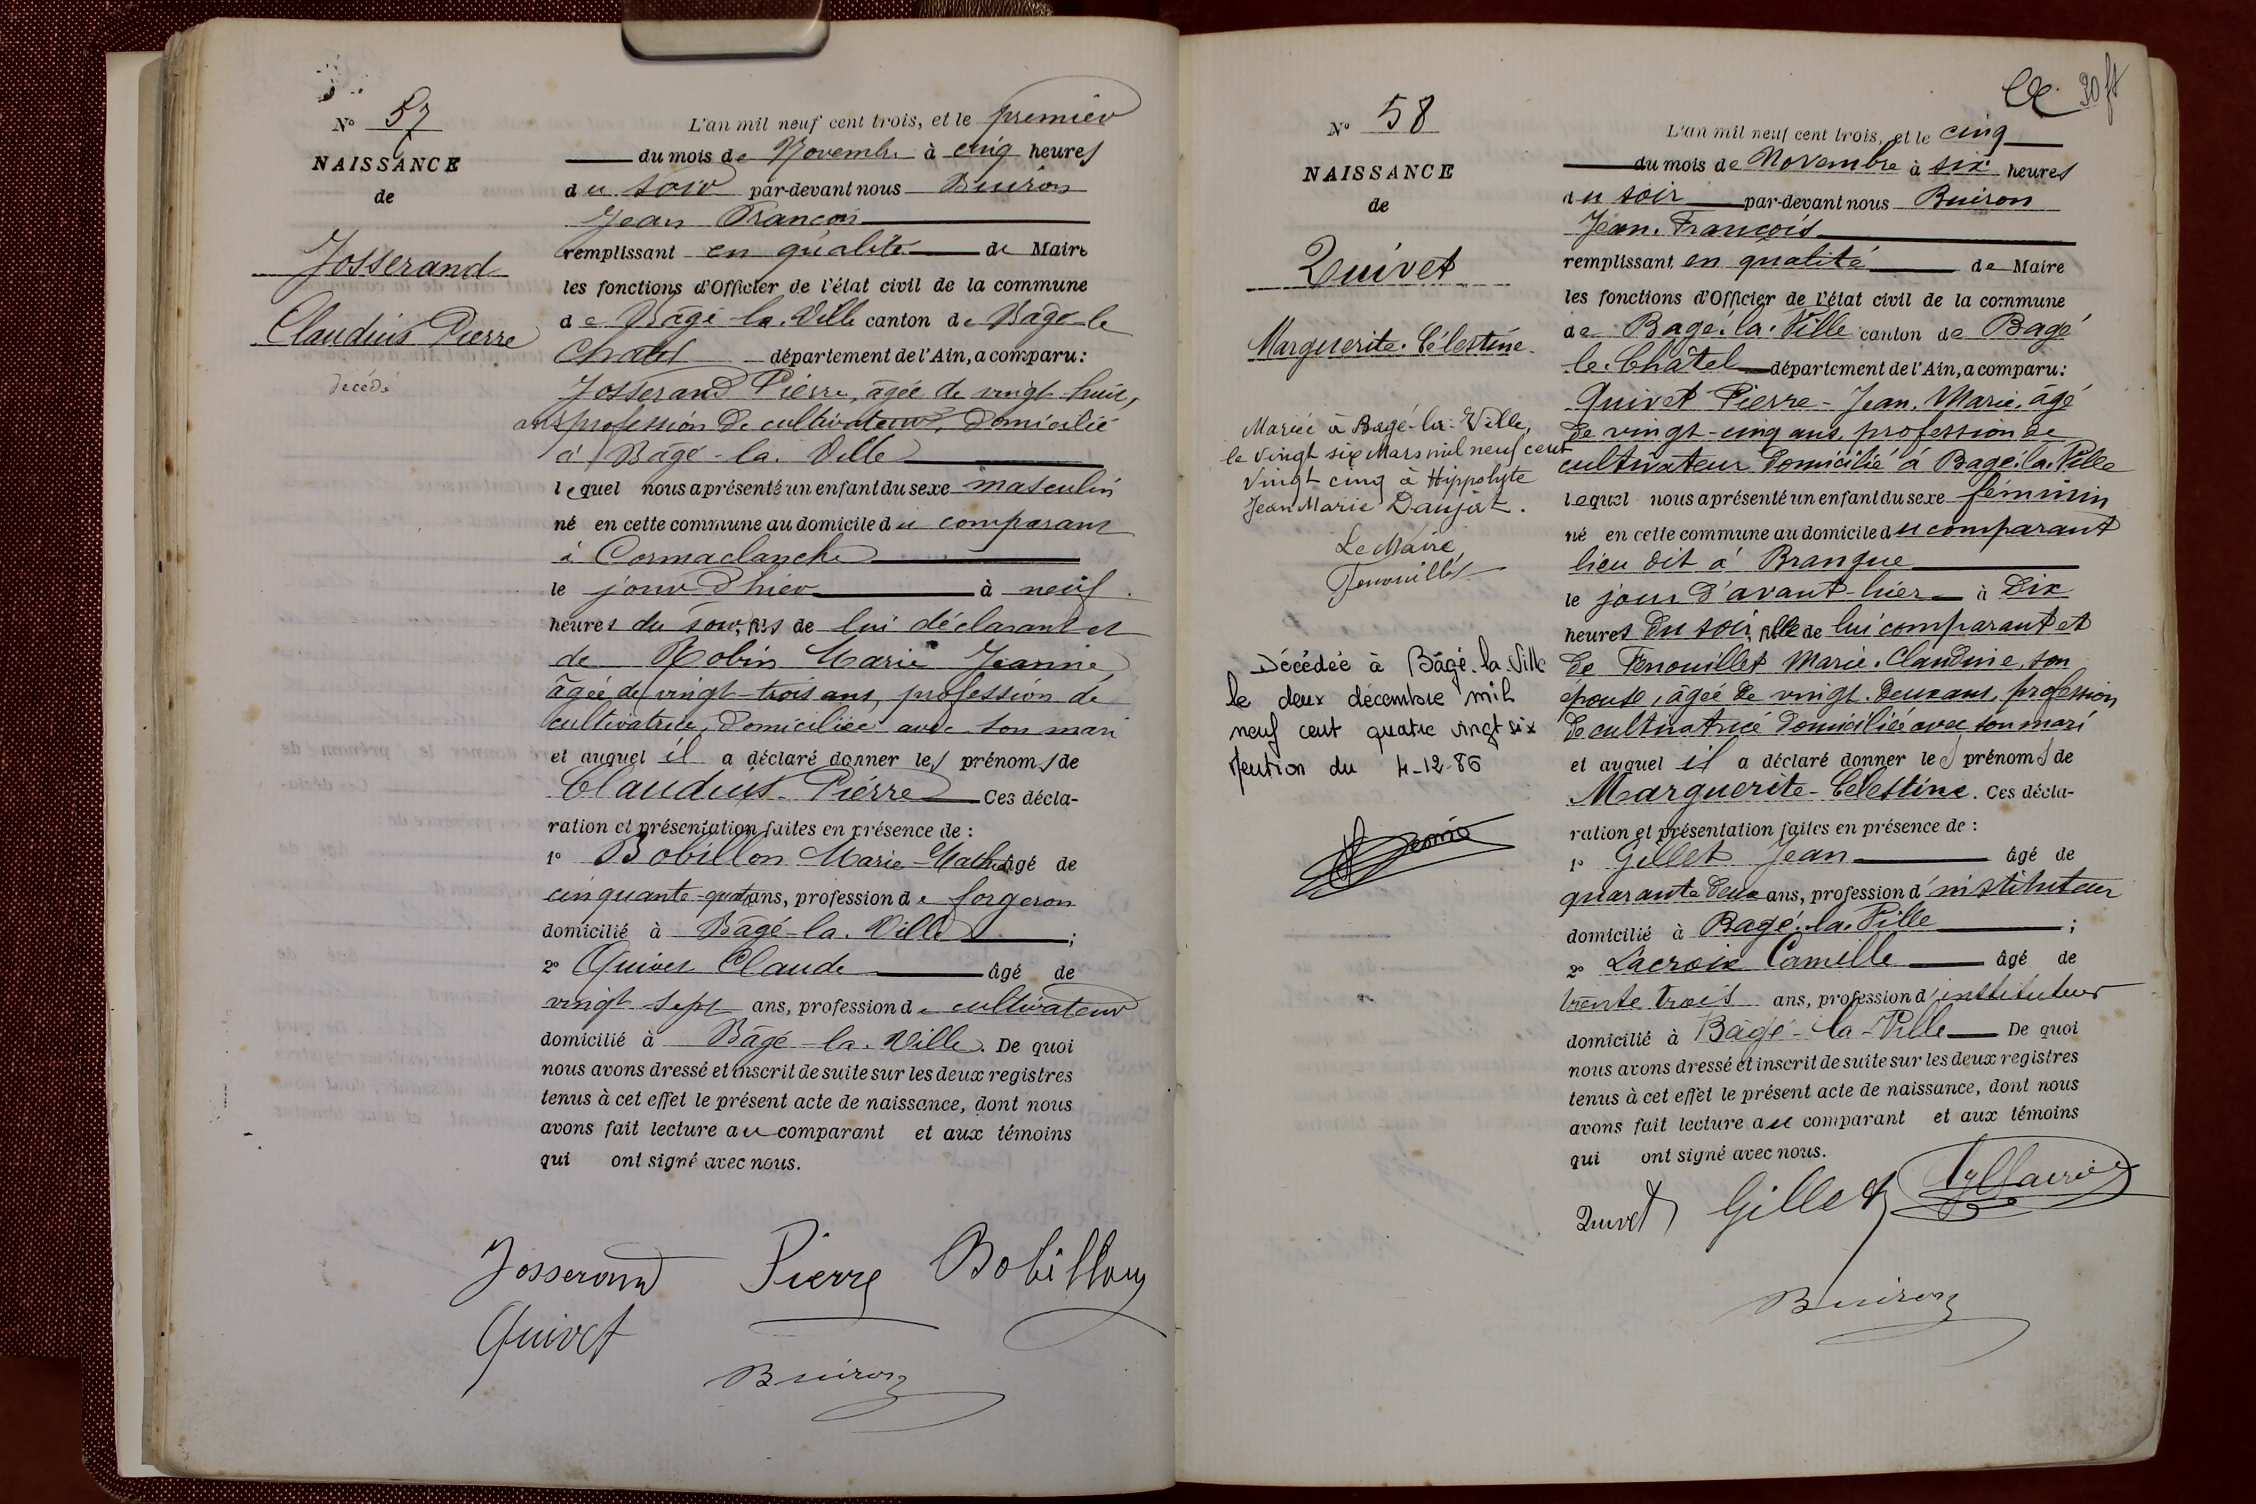 N° 57
NAISSANCE
de
Josserand
Claudius Pierre
décédé
L'an mil neuf cent trois, et le premier
du mois de Novembre à cinq heures
du soir par-devant nous Buiron
Jean François
remplissant en qualité de Maire
les fonctions d'Officier de l'état civil de la commune
de Bâgé-la-Ville canton de Bâgé-le
Chatel département de l'Ain, a comparu:
Josserand Pierre, âgée de vingt-huit,
ans profession de cultivateur, domicilié
à Bâgé-la-Ville
lequel nous a présenté un enfant du sexe masculin
né en cette commune au domicile du comparant
à Cormaclanche
le jour d'hier à neuf
heures du soir, fils de lui déclarant et
de Robin Marie Jeanne
âgée de vingt-trois ans, profession de
cultivatrice, domiciliée avec son mari
et auquel il a déclaré donner les prénoms de
Claudius Pierre Ces décla-
ration et présentation faites en présence de :
1° Bobillon Marie-Mathieu âgé de
cinquante-quatre ans, profession de forgeron
domicilié à Bâgé-la-Ville ;
2° Quivet Claude âgé de
vingt-sept ans, profession de cultivateur
domicilié à Bâgé-la-Ville. De quoi
nous avons dressé et inscrit de suite sur les deux registres
tenus à cet effet le présent acte de naissance, dont nous
avons fait lecture au comparant et aux témoins
qui ont signé avec nous.
Josserand Pierre Bobillon
Quivet
Buiron
30 ft
N° 58
NAISSANCE
de
Quivet
Marguerite-Célestine
Mariée à Bagé-la-Ville,
le vingt six Mars mil neuf cent
vingt cinq à Hippolyte
Jean Marie Daujat.
Le Maire,
Fenouillet
Décédée à Bâgé-la-Ville
le deux décembre mil
neuf cent quatre vingt six
Mention du 4-12-86
L'an mil neuf cent trois, et le cinq
du mois de Novembre à six heures
du soir par-devant nous Buiron
Jean-François
remplissant en qualité de Maire
les fonctions d'Officier de l'état civil de la commune
de Bagé-la-Ville canton de Bagé
le-Châtel département de l'Ain, a comparu:
Quivet Pierre-Jean-Marie, âgé
de vingt-cinq ans, profession de
cultivateur domicilié à Bagé-la-Ville
lequel nous a présenté un enfant du sexe féminin
né en cette commune au domicile du comparant
lieu dit à Branque
le jour d'avant-hier à dix
heures du soir, fille de lui comparant et
de Fenouillet Marie-Claudine, son
épouse, âgée de vingt-deux ans, profession
de cultivatrice domiciliée avec son mari
et auquel il a déclaré donner les prénoms de
Marguerite-Célestine. Ces décla-
ration et présentation faites en présence de :
1° Gillet Jean âgé de
quarante deux ans, profession d'instituteur
domicilié à Bagé-la-Ville ;
2° Lacroix Camille âgé de
trente trois ans, profession d'instituteur
domicilié à Bâgé-la-Ville De quoi
nous avons dressé et inscrit de suite sur les deux registres
tenus à cet effet le présent acte de naissance, dont nous
avons fait lecture au comparant et aux témoins
qui ont signé avec nous.
Quivet Gillet Lacroix
Buiron